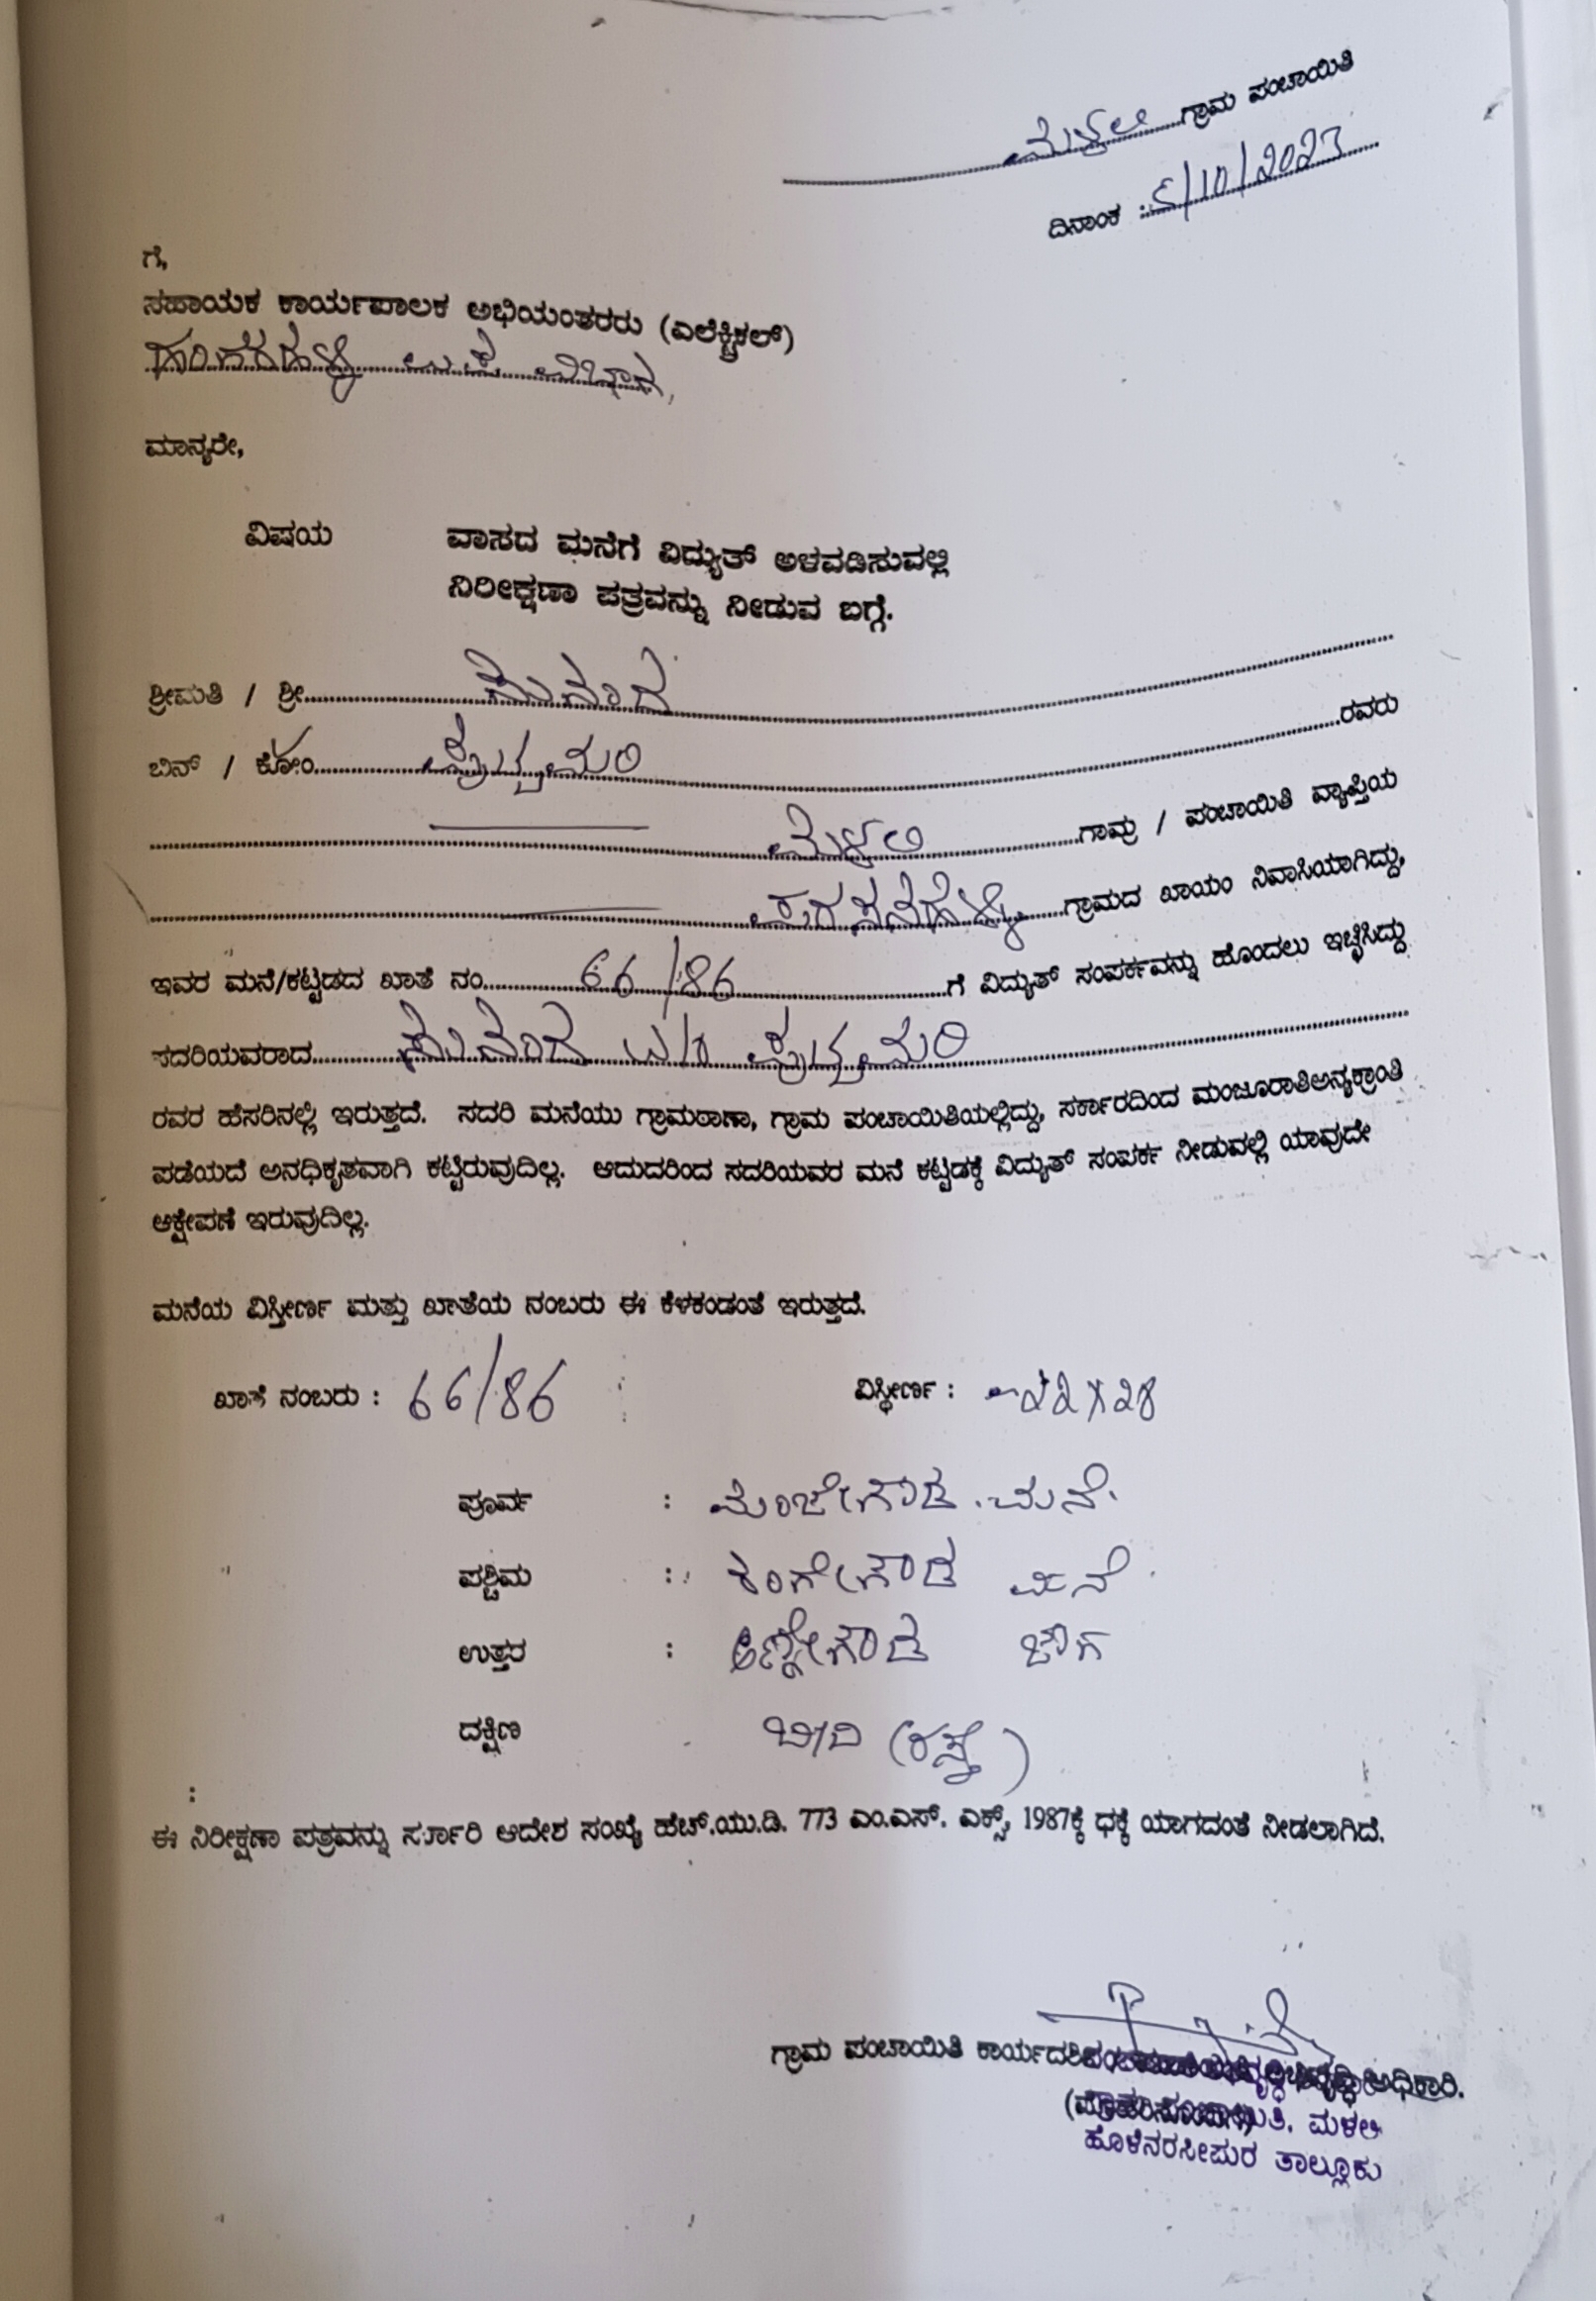 ಮಳಲಿ ಗ್ರಾಮ ಪಂಚಾಯಿತಿ
ದಿನಾಂಕ : /10/2023
ಗೆ,
ಸಹಾಯಕ ಕಾರ್ಯಪಾಲಕ ಅಭಿಯಂತರರು (ಎಲೆಕ್ಟ್ರಿಕಲ್)
ಉಪ ವಿಭಾಗ,
ಮಾನ್ಯರೇ,
ವಿಷಯ ವಾಸದ ಮನೆಗೆ ವಿದ್ಯುತ್ ಅಳವಡಿಸುವಲ್ಲಿ
ನಿರೀಕ್ಷಣಾ ಪತ್ರವನ್ನು ನೀಡುವ ಬಗ್ಗೆ.
ಶ್ರೀಮತಿ / ಶ್ರೀ
ಬಿನ್ / ಕೋಂ ರವರು
ಮಳಲಿ ಗಾಮ್ರ / ಪಂಚಾಯಿತಿ ವ್ಯಾಪ್ತಿಯ
ಗ್ರಾಮದ ಖಾಯಂ ನಿವಾಸಿಯಾಗಿದ್ದು,
ಇವರ ಮನೆ/ಕಟ್ಟಡದ ಖಾತೆ ನಂ. 66/86 ಗೆ ವಿದ್ಯುತ್ ಸಂಪರ್ಕವನ್ನು ಹೊಂದಲು ಇಚ್ಛಿಸಿದ್ದು
ಸದರಿಯವರಾದ
ರವರ ಹೆಸರಿನಲ್ಲಿ ಇರುತ್ತದೆ. ಸದರಿ ಮನೆಯು ಗ್ರಾಮಠಾಣಾ, ಗ್ರಾಮ ಪಂಚಾಯಿತಿಯಲ್ಲಿದ್ದು, ಸರ್ಕಾರದಿಂದ ಮಂಜೂರಾತಿಅನ್ಯಕ್ರಾಂತಿ
ಪಡೆಯದೆ ಅನಧಿಕೃತವಾಗಿ ಕಟ್ಟಿರುವುದಿಲ್ಲ. ಆದುದರಿಂದ ಸದರಿಯವರ ಮನೆ ಕಟ್ಟಡಕ್ಕೆ ವಿದ್ಯುತ್ ಸಂಪರ್ಕ ನೀಡುವಲ್ಲಿ ಯಾವುದೇ
ಆಕ್ಷೇಪಣೆ ಇರುವುದಿಲ್ಲ.
ಮನೆಯ ವಿಸ್ತೀರ್ಣ ಮತ್ತು ಖಾತೆಯ ನಂಬರು ಈ ಕೆಳಕಂಡಂತೆ ಇರುತ್ತದೆ.
ಖಾತೆ ನಂಬರು : 66/86 ವಿಸ್ತೀರ್ಣ : 22X28
ಪೂರ್ವ : ಮಂಜೇಗೌಡ ಮನೆ.
ಪಶ್ಚಿಮ : ರಂಗೇಗೌಡ ಮನೆ.
ಉತ್ತರ : ಅಣ್ಣೇಗೌಡ ಜಾಗ
ದಕ್ಷಿಣ ಬೀದಿ (ರಸ್ತೆ)
:
ಈ ನಿರೀಕ್ಷಣಾ ಪತ್ರವನ್ನು ಸರ್ಕಾರಿ ಆದೇಶ ಸಂಖ್ಯೆ ಹೆಚ್.ಯು.ಡಿ. 773 ಎಂ.ಎಸ್. ಎಕ್ಸ್, 1987ಕ್ಕೆ ಧಕ್ಕೆ ಯಾಗದಂತೆ ನೀಡಲಾಗಿದೆ.
ಗ್ರಾಮ ಪಂಚಾಯಿತಿ ಕಾರ್ಯದರ್ಶಿ ಅಧಿಕಾರಿ.
ಮಳಲಿ
ಹೊಳೆನರಸೀಪುರ ತಾಲ್ಲೂಕು